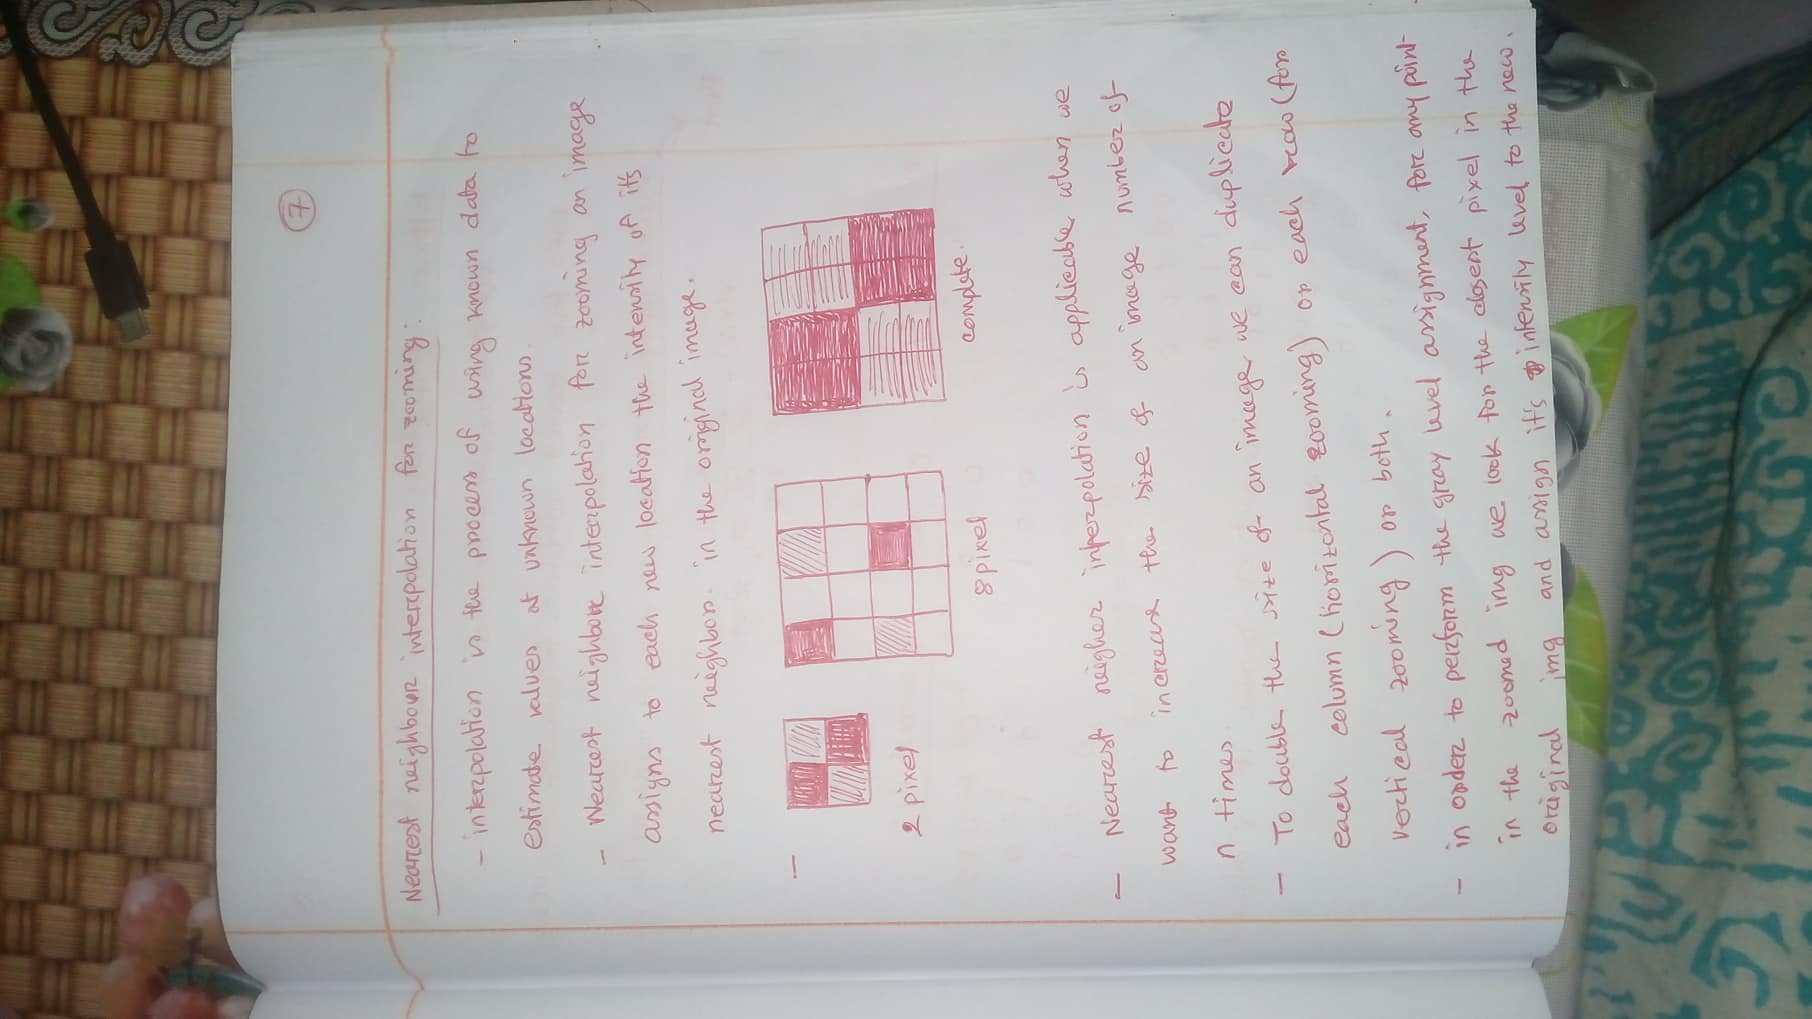 7
Nearest neighbour interpolation for zooming:
- interpolation is the process of using known data to
estimate values at unknown locations.
- Nearest neighbour interpolation for zooming an image
assigns to each new location the intensity of its
nearest neighbor. in the original image.
-
2 pixel
8 pixel
complete.
- Nearest neigher interpolation is applicable when we
want to increase the size of an image number of
n times.
- To double the size of an image we can duplicate
each column (horizontal zooming) or each row (for
vertical zooming) or both.
- in order to perform the gray level assignment, for any point
in the zoomed img we look for the closest pixel in the
original img and assign it's intensity level to the new.